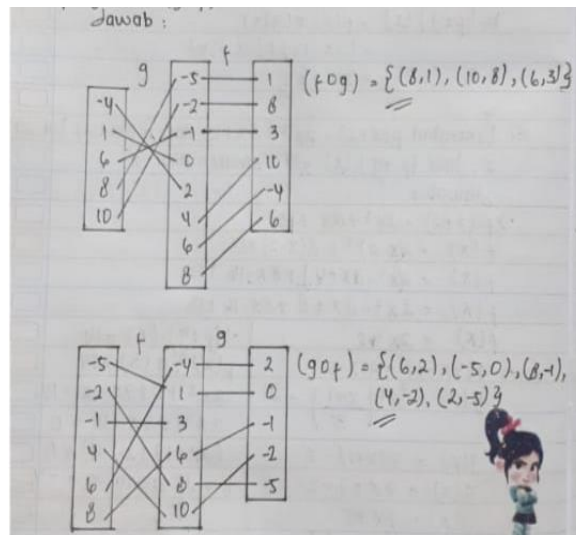 Jawab :
g f
-4
1
6
8
10
-5
-2
-1
0
2
4
6
8
1
8
3
10
-4
6
(fog) = {(8,1), (10,8), (6,3}
f g
-5
-2
-1
4
6
8
-4
1
3
6
8
10
2
0
-1
-2
-5
(gof) = {(6,2), (-5,0), (8,-1),
(4,-2), (2,-5)}